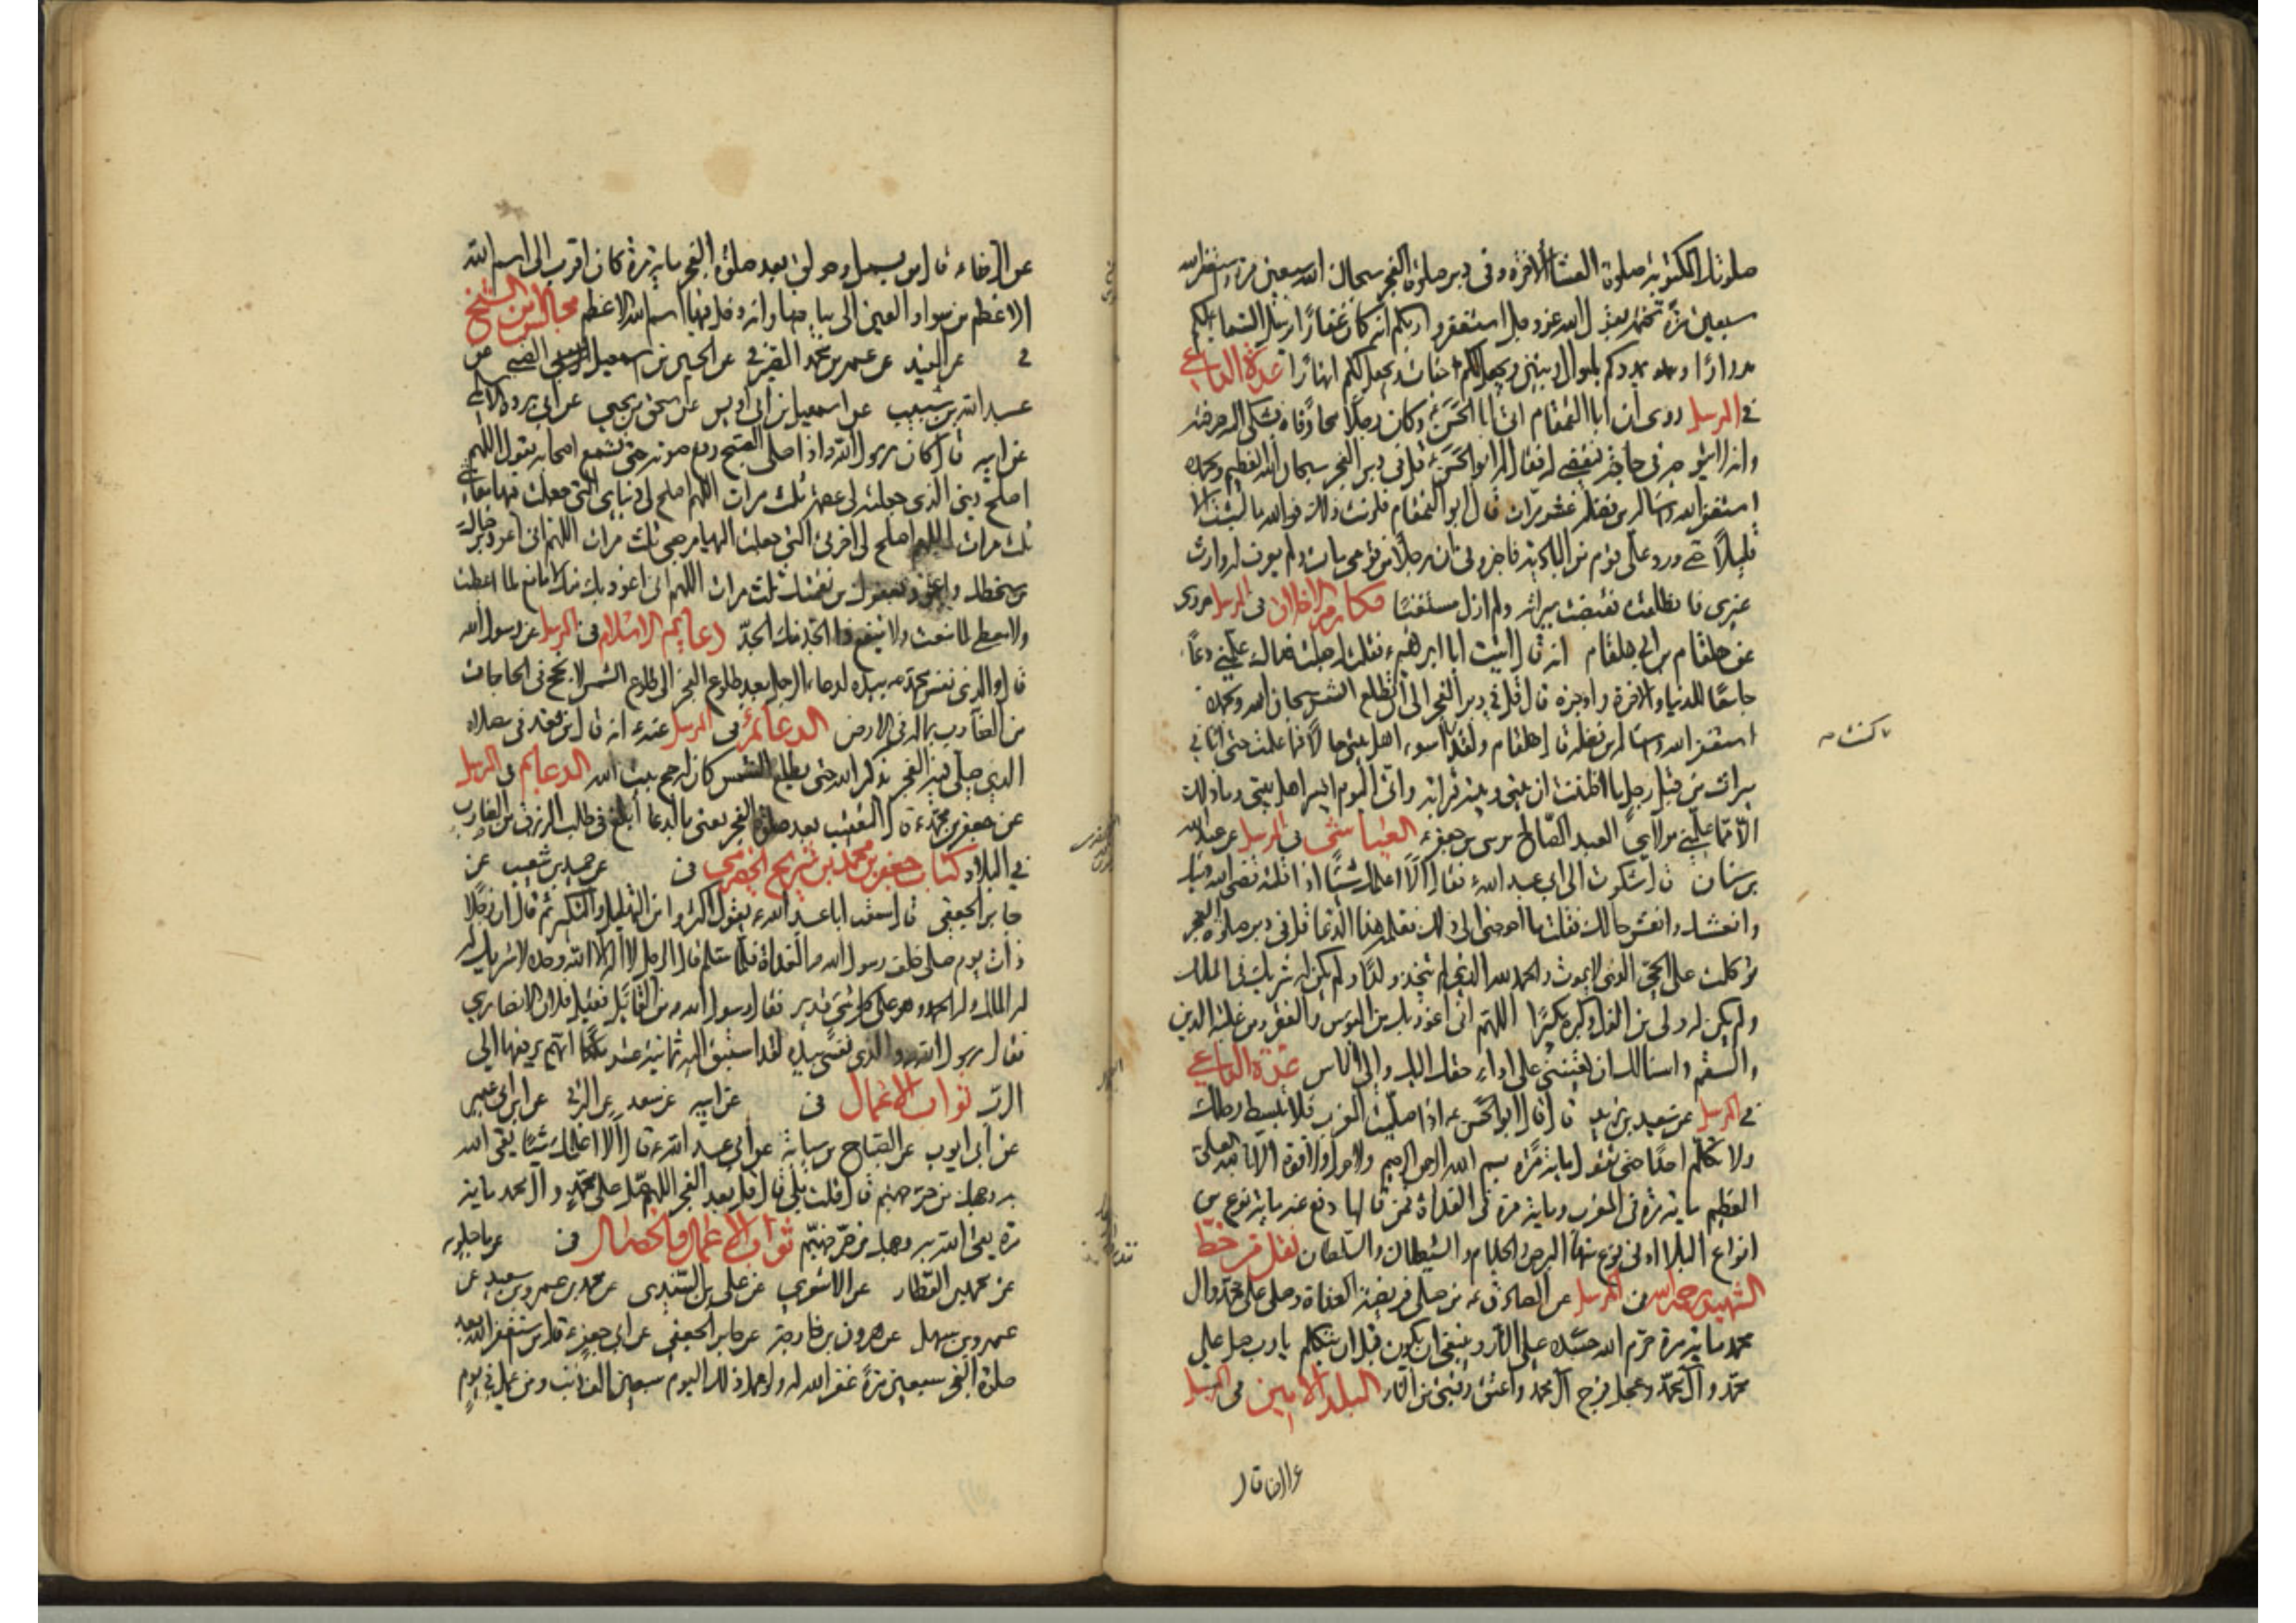 صلوتك المكتوبة صلوة العشاء الآخرة وفي دبر صلوة الفجر سبحان الله سبعين مرة واستغفر الله
سبعين مرة تختمه بقول الله عزوجل استغفروا ربكم انه كان غفارا يرسل السماء عليكم
مدرارا ويمددكم باموال وبنين ويجعل لكم جنات ويجعل لكم انهارا عدة الداعي
في المرسل روى ان ابا القمقام اتى ابا الحسن ع وكان رجلا محارفا فشكى اليه حرفته
وانه لا يتوجه في حاجة فتقضى له فقال له ابو الحسن ع قل في دبر الفجر سبحان الله العظيم وبحمده
استغفر الله واساله من فضله عشر مرات قال ابو القمقام فلزمت ذلك فوالله ما لبثت الا
قليلا حتى ورد على قوم من البادية فاخبروني ان رجلا من قومي مات ولم يعرف له وارث
غيري فانطلقت فقبضت ميراثه ولم ازل مستغنيا مكارم الاخلاق في المرسل مروى
عن هلقام بن ابي هلقام انه قال اتيت ابا ابراهيم ع فقلت له جعلت فداك علمني دعاء
جامعا للدنيا والاخرة واوجزه قال قل في دبر الفجر الى ان تطلع الشمس سبحان الله وبحمده
استغفر الله واساله من فضله قال هلقام ولقد اسوء اهل بيتي حالا فما علمت حتى اتاني
ما كنت مه
ميراث من قبل رجل ما ظننت ان بيني وبينه قرابة واني اليوم ايسر اهل بيتي وما ذلك
الا مما علمني مولاي العبد الصالح موسى بن جعفر ع العياشي في المرسل عن عبد الله
بن سنان قال شكوت الى ابي عبد الله ع فقال الا اعلمك شيئا اذا قلته قضى الله دينك
وانعشك وانعش حالك فقلت ما احوجني الى ذلك فعلمه هذا الدعا قل في دبر صلوة الفجر
توكلت على الحي الذي لا يموت والحمد لله الذي لم يتخذ ولدا ولم يكن له شريك في الملك
ولم يكن له ولي من الذل وكبره تكبيرا اللهم اني اعوذ بك من البؤس والفقر ومن غلبة الدين
والسقم واسالك ان تعينني على اداء حقك اليك والى الناس عدة الداعي
في المرسل عن سعيد بن زيد قال قال ابو الحسن ع اذا صليت المغرب فلا تبسط رجلك
ولا تكلم احدا حتى تقول مائة مرة بسم الله الرحمن الرحيم ولا حول ولا قوة الا بالله العلي
العظيم مائة مرة في المغرب ومائة مرة في الغداة فمن قالها دفع عنه مائة نوع من
انواع البلاء ادنى نوع منها البرص والجذام والشيطان والسلطان نقل من خط
الشهيد رحمه الله في المرسل عن الصادق ع من صلى فريضة الغداة وصلى على محمد وال
محمد مائة مرة حرم الله جسده على النار وينبغي ان يكون قبل ان يتكلم يا رب صل على
محمد وآل محمد وعجل فرج آل محمد واعتق رقبتي من النار البلد الامين في المرسل
عن الرضاء ع قال من بسمل وحولق بعد صلوة الفجر مائة مرة كان اقرب الى اسم الله
الاعظم من سواد العين الى بياضها وانه دخل فيها اسم الله الاعظم مجالس ابن الشيخ
في عن المفيد عن عمر بن محمد الصيرفي عن الحسين بن اسمعيل الضبي عن
عبد الله بن شبيب عن اسمعيل بن ابي اويس عن اسحق بن يحيى عن ابي بردة الاسلمي
عن ابيه قال كان رسول الله ص اذا صلى الصبح رفع صوته حتى يسمع اصحابه يقول اللهم
اصلح ديني الذي جعلته لي عصمة ثلث مرات اللهم اصلح لي دنياي التي جعلت فيها معاشي
ثلث مرات اللهم اصلح لي اخرتي التي جعلت اليها مرجعي ثلث مرات اللهم اني اعوذ برضاك
من سخطك واعوذ بعفوك من نقمتك ثلث مرات اللهم اني اعوذ بك منك لا مانع لما اعطيت
ولا معطي لما منعت ولا ينفع ذا الجد منك الجد دعايم الاسلام في المرسل عن رسول الله
قال والذي نفس محمد بيده لدعاء الرجل بعد طلوع الفجر الى طلوع الشمس لانجح في الحاجات
من الضارب بماله في الارض الدعائم في المرسل عنه ع انه قال من قعد في مصلاه
الذي صلى فيه الفجر يذكر الله حتى يطلع الشمس كان له حج بيت الله الدعايم في المرسل
عن جعفر بن محمد ع قال التعقيب بعد صلوة الفجر يعني بالدعا ابلغ في طلب الرزق من الضارب
في البلاد كتاب جعفر بن محمد بن شريح الحضرمي في عن حميد بن شعيب عن
جابر الجعفي قال سمعت ابا عبد الله ع يقول اكثروا من التهليل والتكبير ثم قال ان رجلا
ذات يوم صلى خلف رسول الله ص الغداة فلما سلم قال الرجل لا اله الا الله وحده لا شريك له
له الملك وله الحمد وهو على كل شيء قدير فقال رسول الله ص من القائل فقيل فلان الانصاري
فقال رسول الله ص والذي نفسي بيده لقد استبق اليه ثمانية عشر ملكا ايهم يرفعها الى
الرب ثواب الاعمال في عن ابيه عن سعد عن البرقي عن ابن ابي عمير
عن ابي ايوب عن الصباح بن سيابة عن ابي عبد الله ع قال الا اعلمك شيئا يقي الله
به وجهك من حر جهنم قال قلت بلى قال قل بعد الفجر اللهم صل على محمد وآل محمد مائة
مرة يقي الله به وجهك من حر جهنم ثواب الاعمال والخصال في عن ماجيلويه
عن محمد بن العطار عن الاشعري عن علي بن السندي عن محمد بن عمرو بن سعيد عن
عمرو بن سهل عن هرون بن خارجة عن جابر الجعفي عن ابي جعفر ع قال من استغفر الله بعد
صلوة الفجر سبعين مرة غفر الله له ولو عمل ذلك اليوم سبعين الف ذنب ومن عمل في يوم